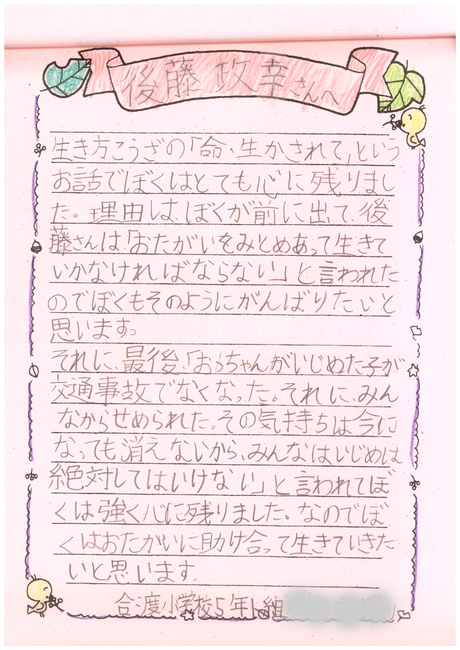 後藤政幸さんへ
生き方こうざの「命・生かされて」という
お話でぼくはとても心に残りまし
た。理由は、ぼくが前に出て、後
藤さんは「おたがいをみとめあって生きて
いかなければならない」と言われた
のでぼくもそのようにがんばりたいと
思います。
それに、最後、「おっちゃんがいじめた子が
交通事故でなくなった。それに、みん
なからせめられた。その気持ちは今に
なっても消えないから、みんなはいじめは
絶対してはいけない」と言われてぼ
くは強く心に残りました。なのでぼ
くはおたがいに助け合って生きていきた
いと思います。
合渡小学校5年1組